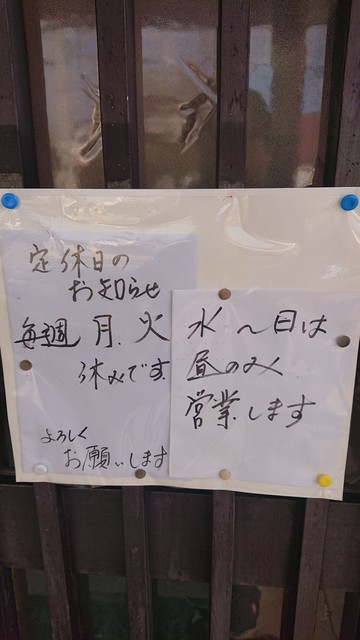 定休日の
お知らせ
毎週 月、火
休みです
よろしく
お願いします
水〜日は
昼のみ
営業します